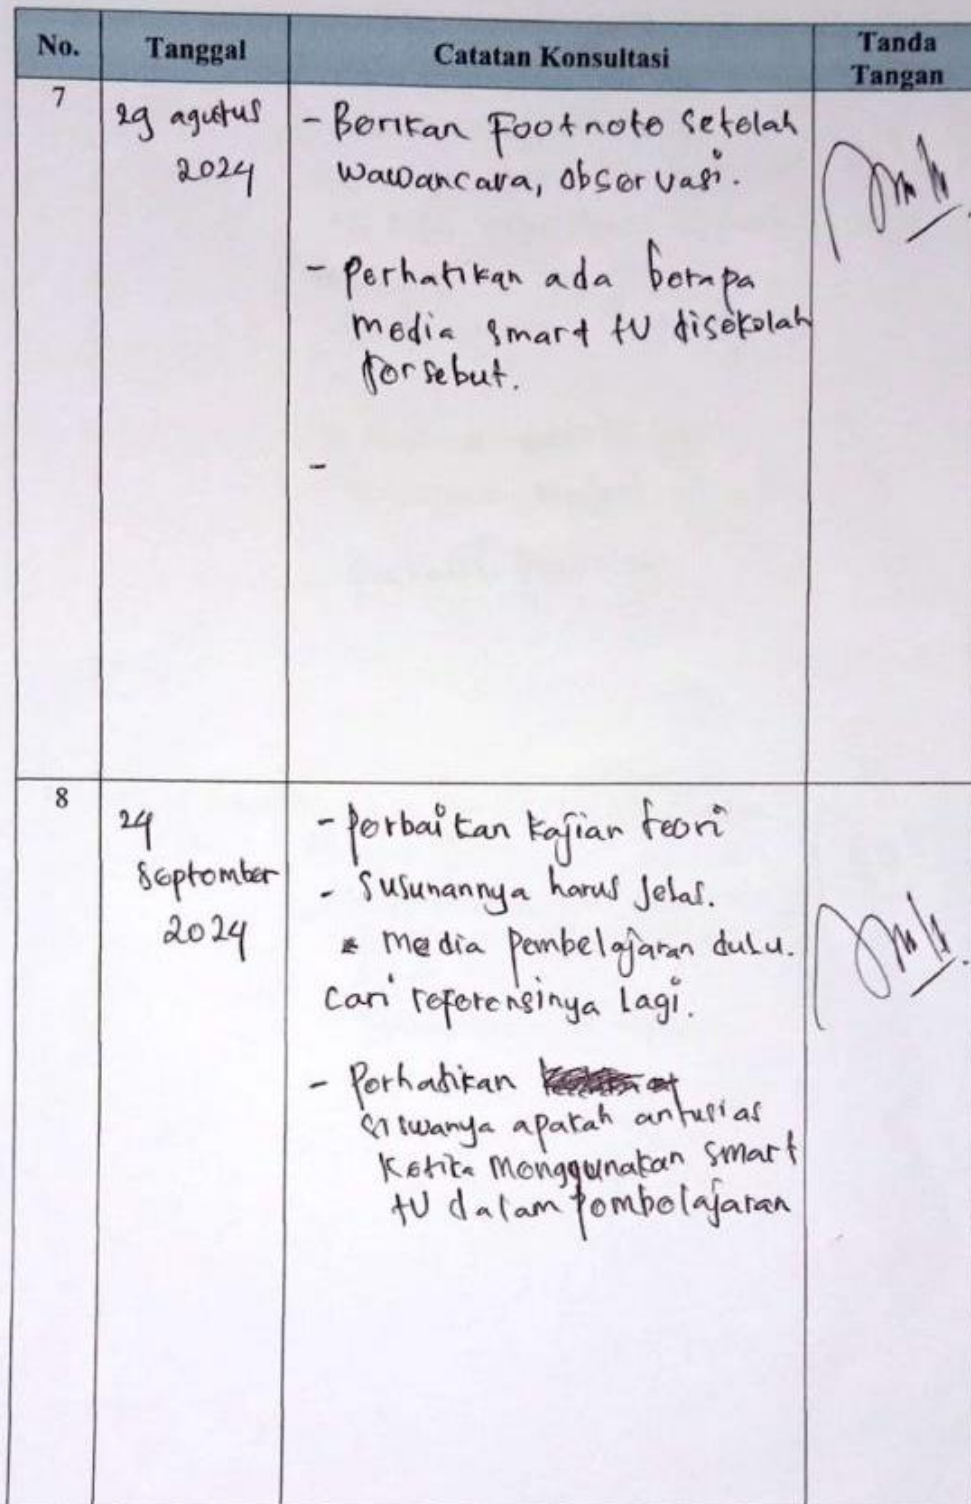 No. Tanggal Catatan Konsultasi Tanda Tangan
7
29 agustus
2024
- Berikan Footnote setelah
wawancara, observasi.
- perhatikan ada berapa
media smart tV disekolah
tersebut.
-
8
24
September
2024
- perbaikan kajian teori
- susunannya harus jelas.
* media pembelajaran dulu.
cari referensinya lagi.
- Perhatikan
siswanya apakah antusias
ketika menggunakan smart
tV dalam pembelajaran